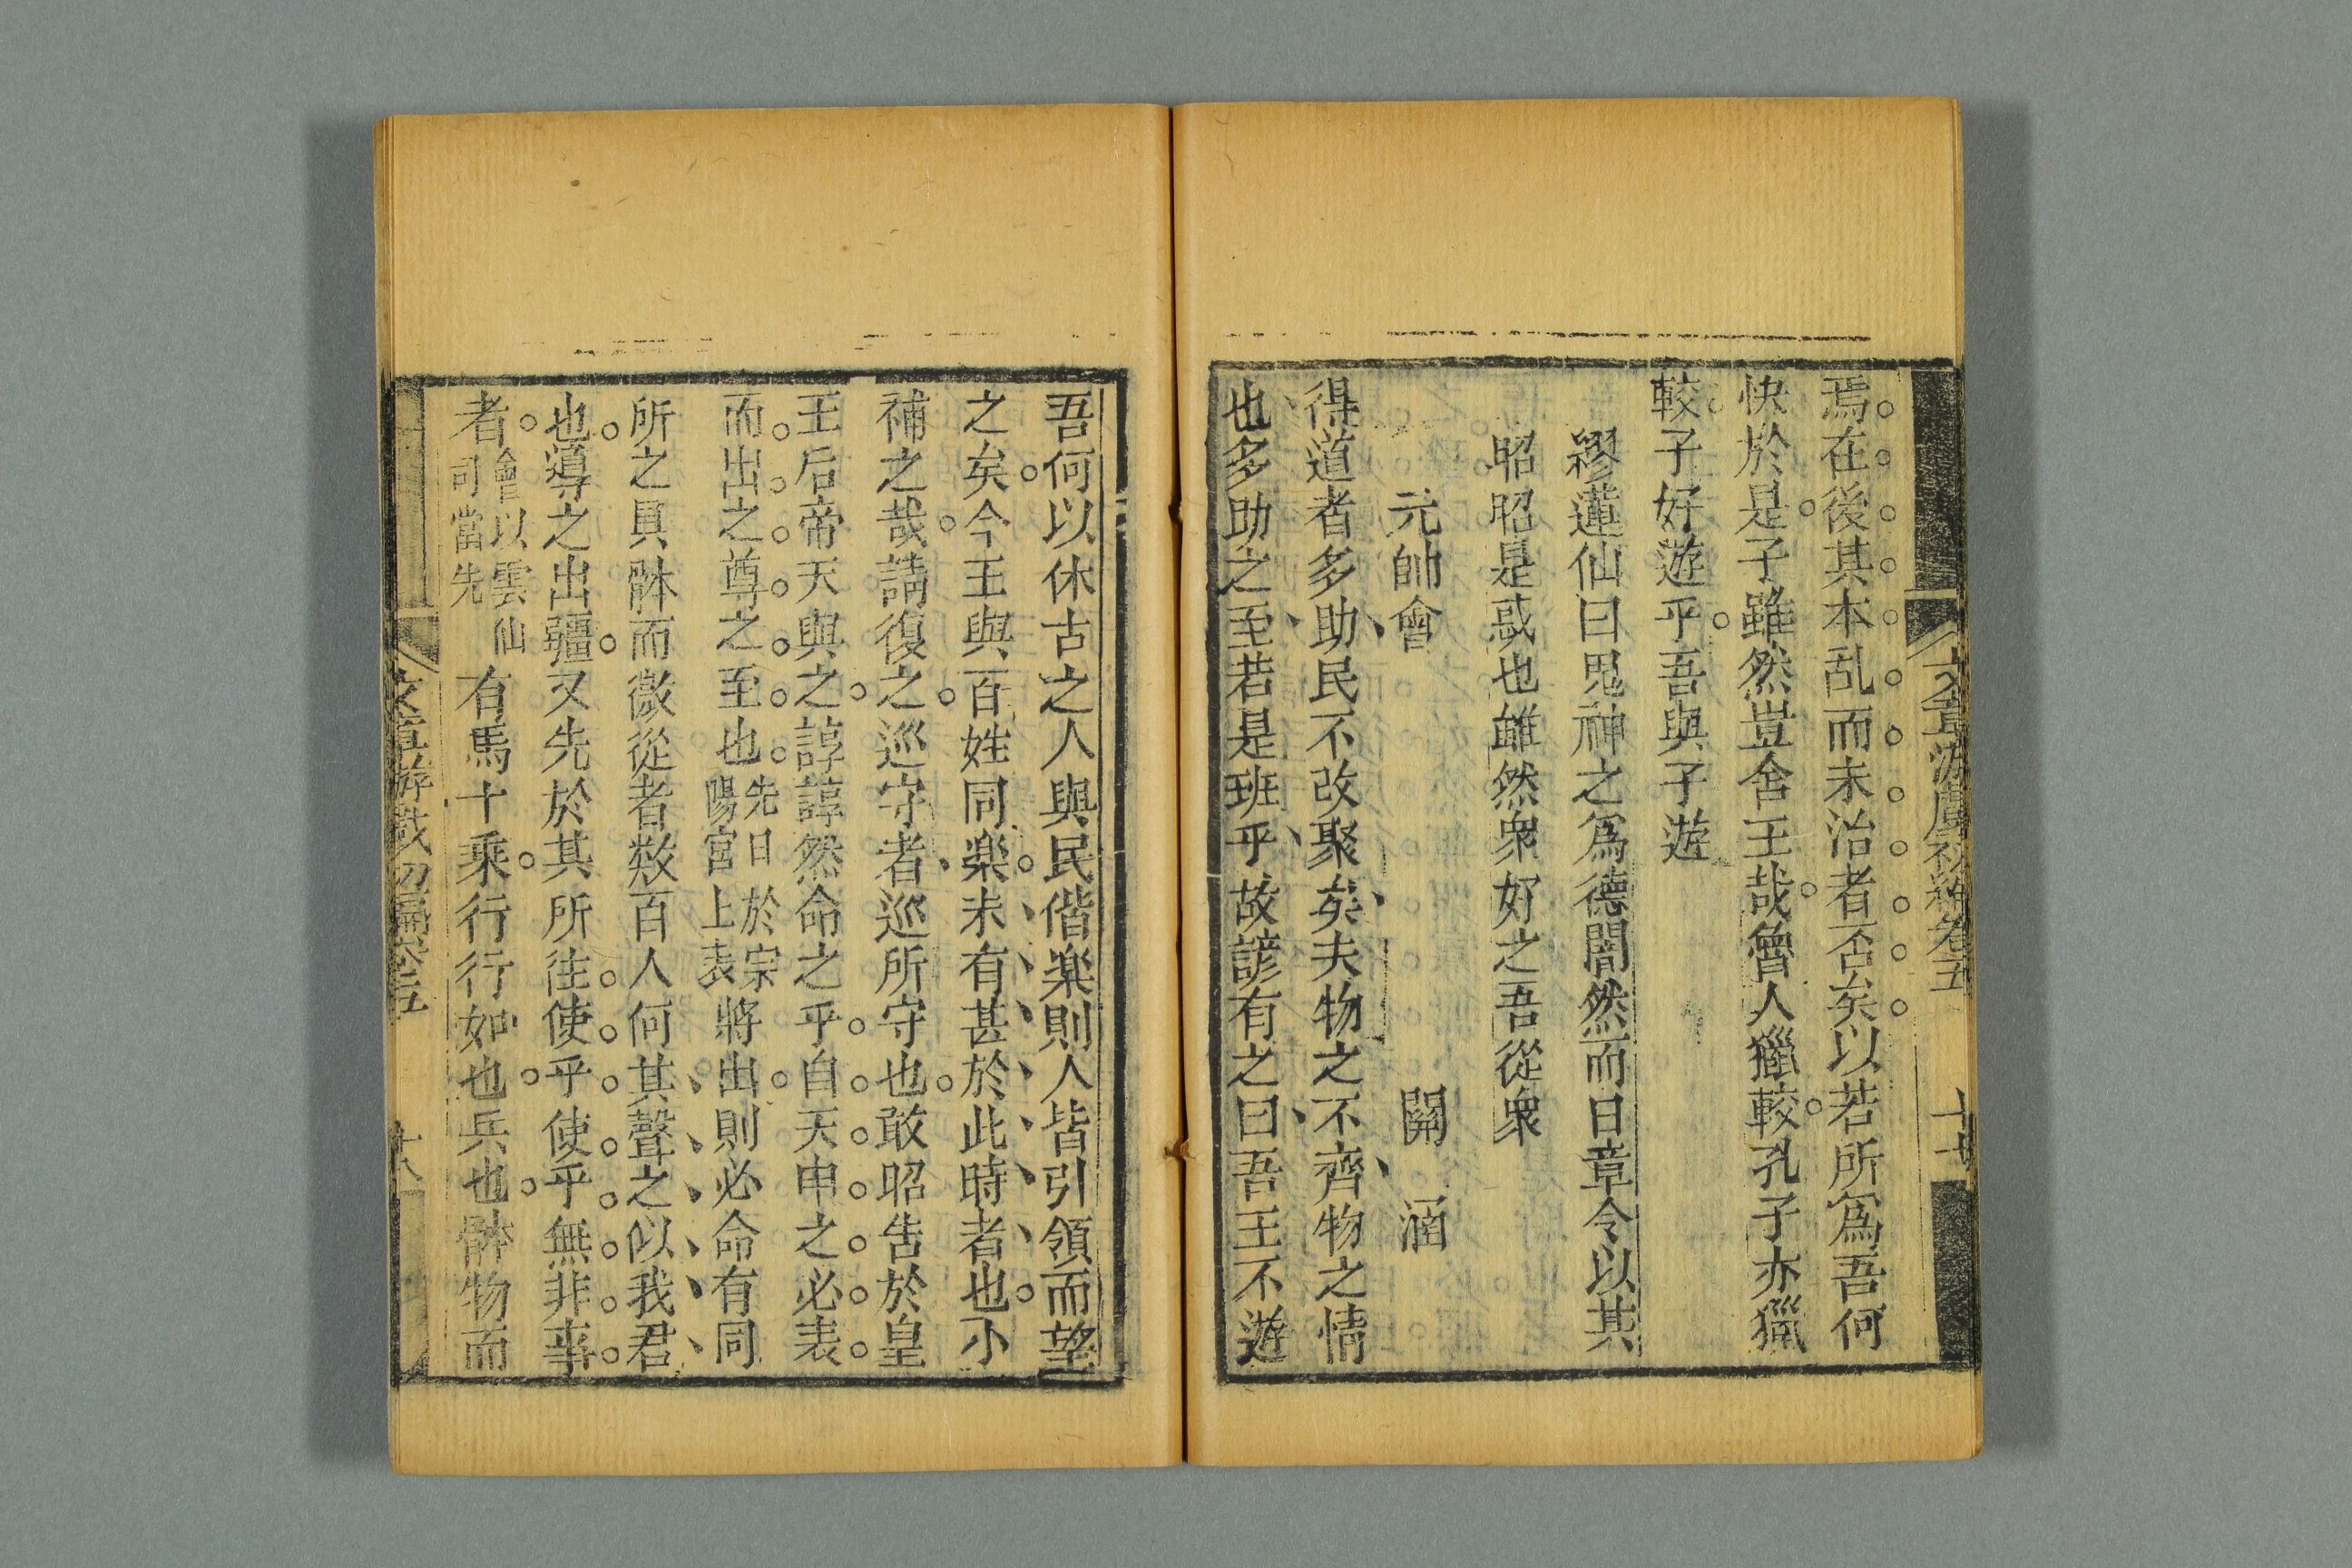 焉在後其本乱而未治者否矣以若所爲吾何
快於是子雖然豈舍王哉魯人獵較孔子亦獵
較子好遊乎吾與子遊
繆蓮仙曰鬼神之爲德闇然而日章今以其
昭昭是惑也雖然衆好之吾從衆
元帥會 關 涵
得道者多助民不改聚矣夫物之不齊物之情
也多助之至若是班乎故諺有之曰吾王不遊
吾何以休古之人與民偕楽則人皆引領而望
之矣今王與百姓同楽未有甚於此時者也小
補之哉請復之巡守者巡所守也敢昭告於皇
王后帝天與之諄諄然命之乎自天申之必表
而出之尊之至也先日於宗陽宮上表將出則必命有同
所之具體而微從者数百人何其聲之似我君
也導之出疆又先於其所往使乎使乎無非事
者會以雲仙司當先有馬十乘行行如也兵也體物而
文章游戲初編卷五 十八